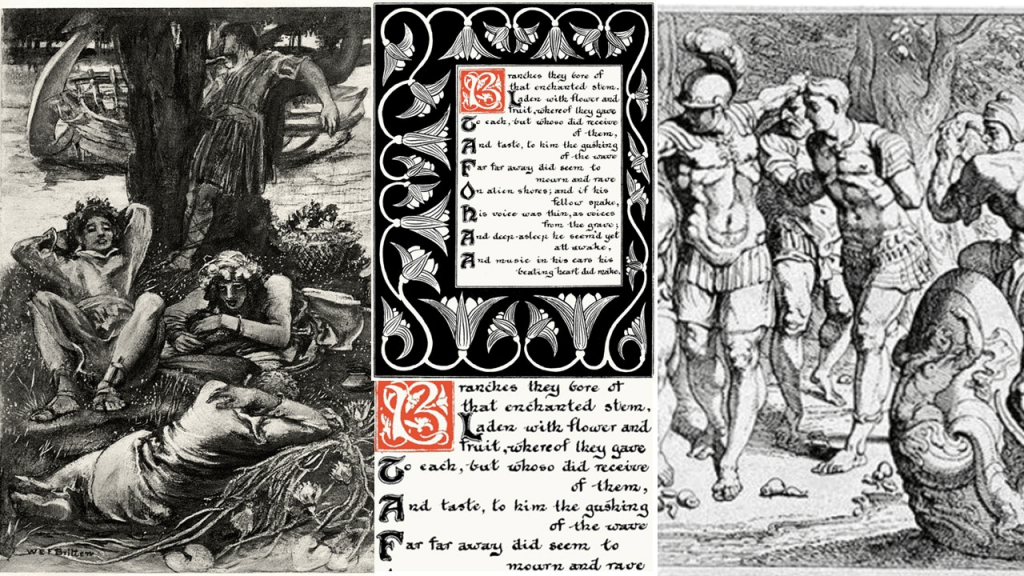 WEF Britten
Branches they bore of
that enchanted stem,
Laden with flower and
fruit, whereof they gave
To each, but whoso did receive
of them,
And taste, to him the gushing
of the wave
Far far away did seem to
mourn and rave
On alien shores; and if his
fellow spake,
His voice was thin, as voices
from the grave;
And deep-asleep he seem'd yet
all awake,
And music in his ears his
beating heart did make.
Branches they bore of
that enchanted stem,
Laden with flower and
fruit, whereof they gave
To each, but whoso did receive
of them,
And taste, to him the gushing
of the wave
Far far away did seem to
mourn and rave